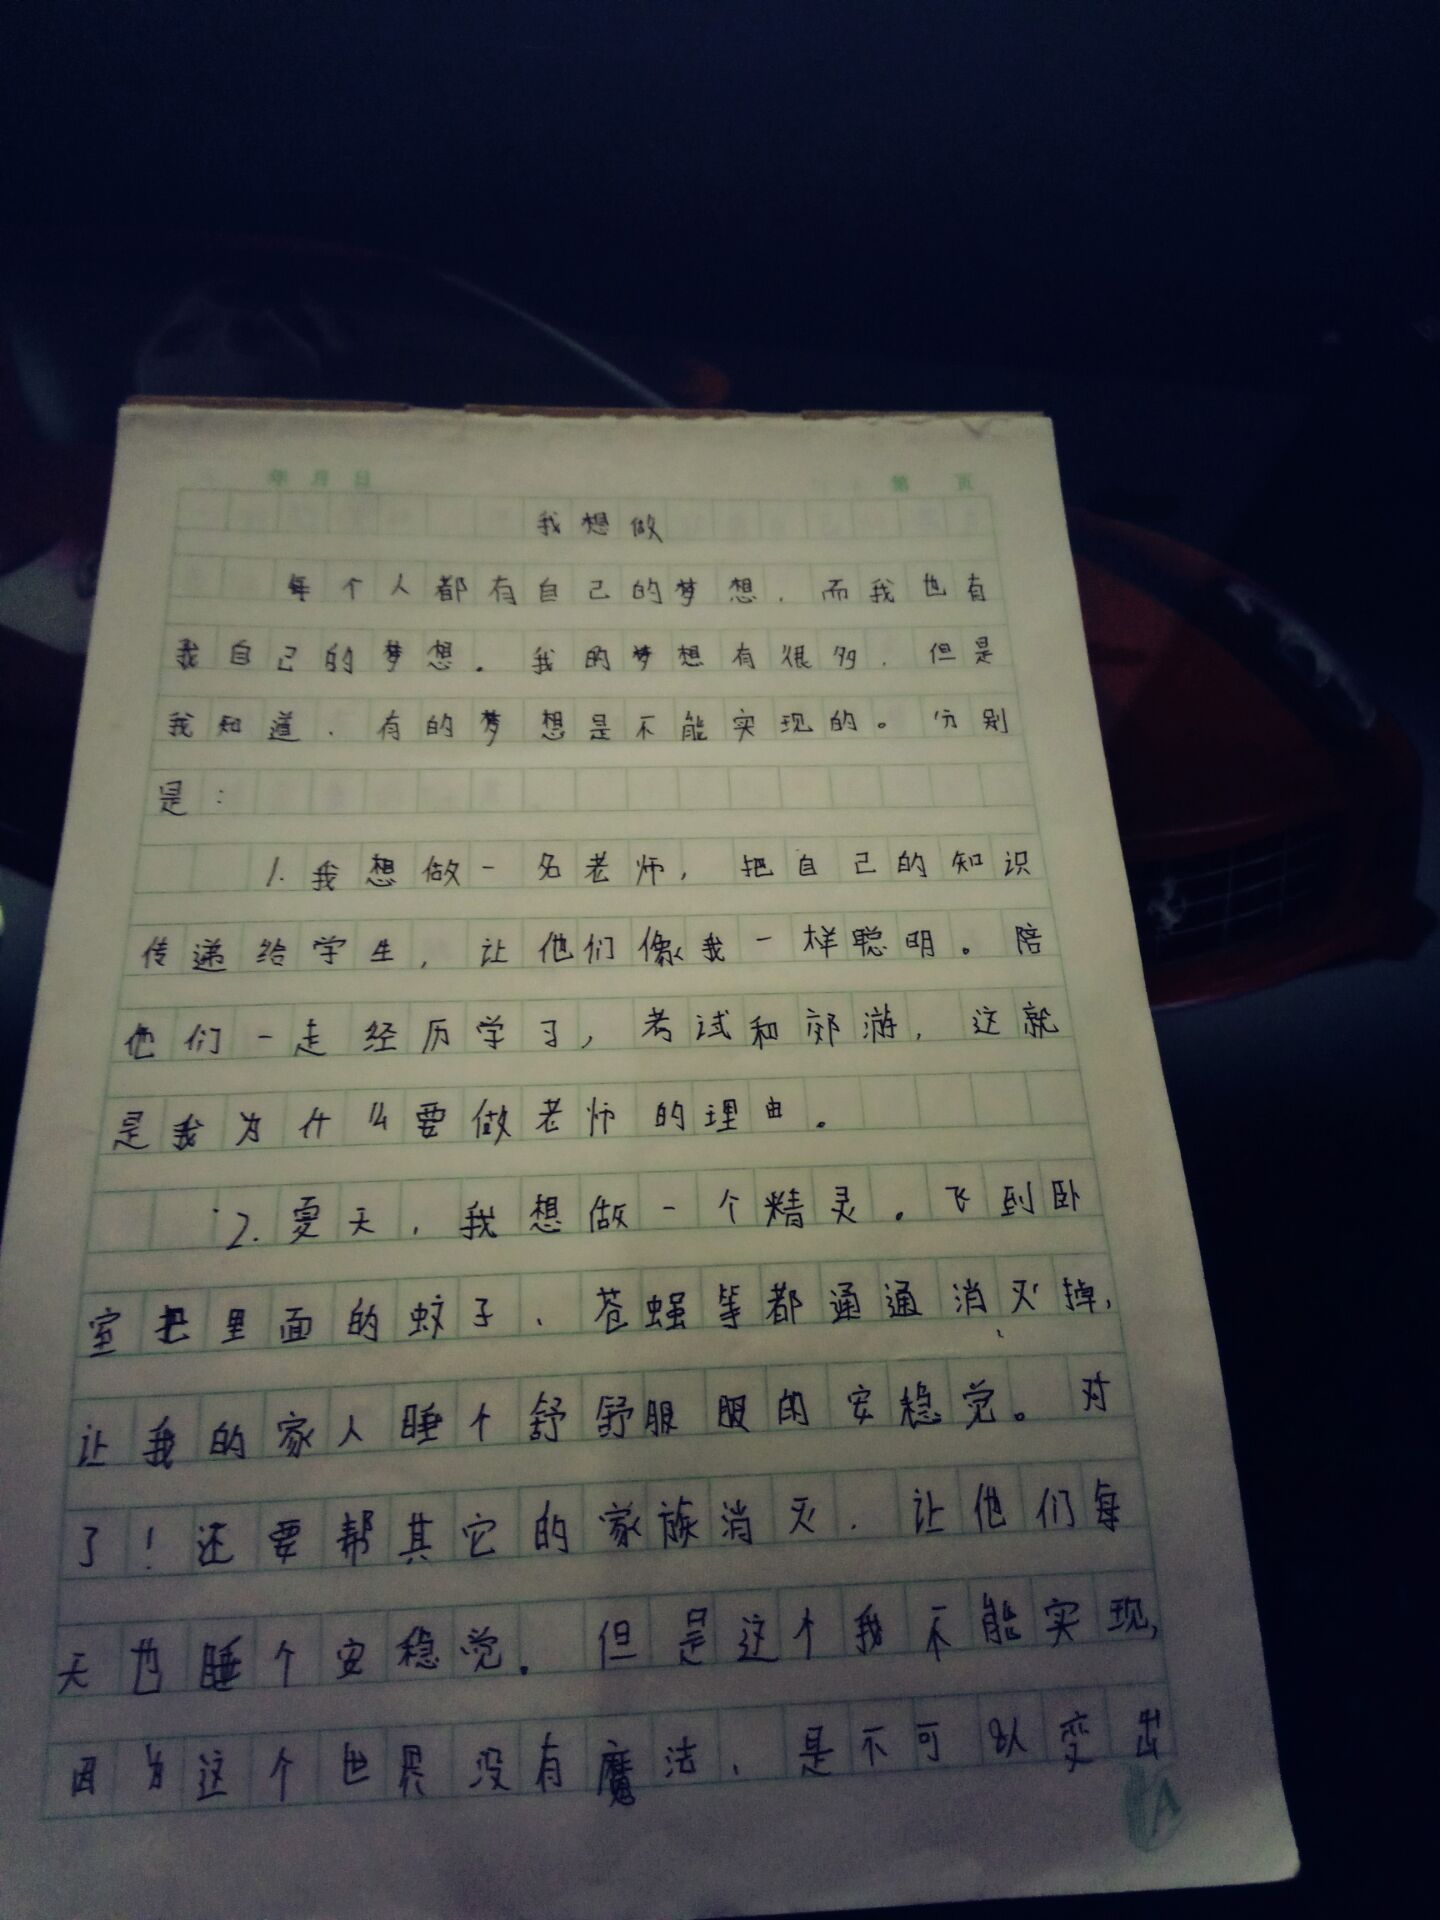 我想做
每个人都有自己的梦想，而我也有
我自己的梦想。我的梦想有很多，但是
我知道，有的梦想是不能实现的。分别
是：
1.我想做一名老师，把自己的知识
传递给学生，让他们像我一样聪明。陪
他们一走经历学习，考试和郊游，这就
是我为什么要做老师的理由。
2.夏天，我想做一个精灵。飞到卧
室把里面的蚊子、苍蝇等都通通消灭掉，
让我的家人睡个舒舒服服的安稳觉。对
了！还要帮其它的家族消灭，让他们每
天也睡个安稳觉。但是这个我不能实现，
因为这个世界没有魔法，是不可以变出